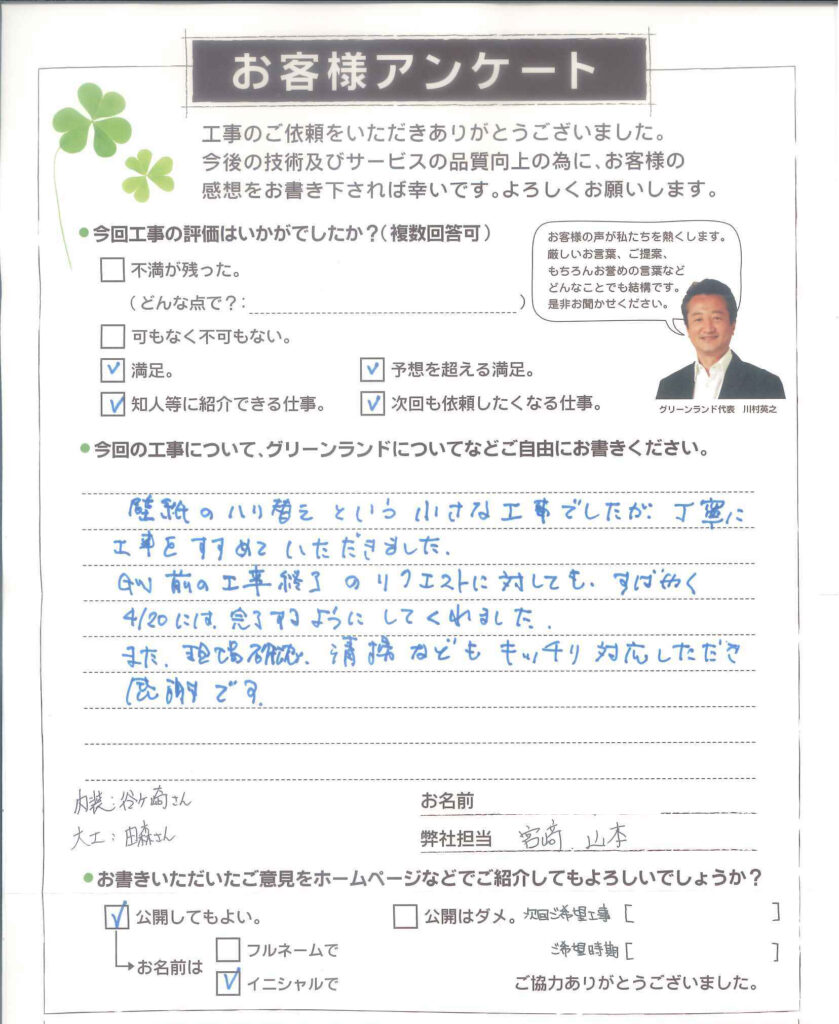 お客様アンケート
工事のご依頼をいただきありがとうございました。
今後の技術及びサービスの品質向上の為に、お客様の
感想をお書き下されば幸いです。よろしくお願いします。
●今回工事の評価はいかがでしたか?(複数回答可)
お客様の声が私たちを熱くします。
厳しいお言葉、ご提案、
もちろんお誉めの言葉など
どんなことでも結構です。
是非お聞かせください。
不満が残った。
(どんな点で?: )
可もなく不可もない。
満足。 予想を超える満足。
知人等に紹介できる仕事。 次回も依頼したくなる仕事。
グリーンランド代表 川村英之
●今回の工事について、グリーンランドについてなどご自由にお書きください。
壁紙のハリ替えという小さな工事でしたが、丁寧に
工事をすすめていただきました。
GW前の工事終了のリクエストに対しても、すばやく
4/20には、完了するようにしてくれました。
また、現場確認、清掃などもキッチリ対応しただき
感謝です。
内装:谷ヶ崎さん
大工:田森さん
お名前
弊社担当 宮﨑 山本
●お書きいただいたご意見をホームページなどでご紹介してもよろしいでしょうか?
公開してもよい。 公開はダメ。 次回ご希望工事[ ]
お名前は フルネームで ご希望時期[ ]
イニシャルで ご協力ありがとうございました。